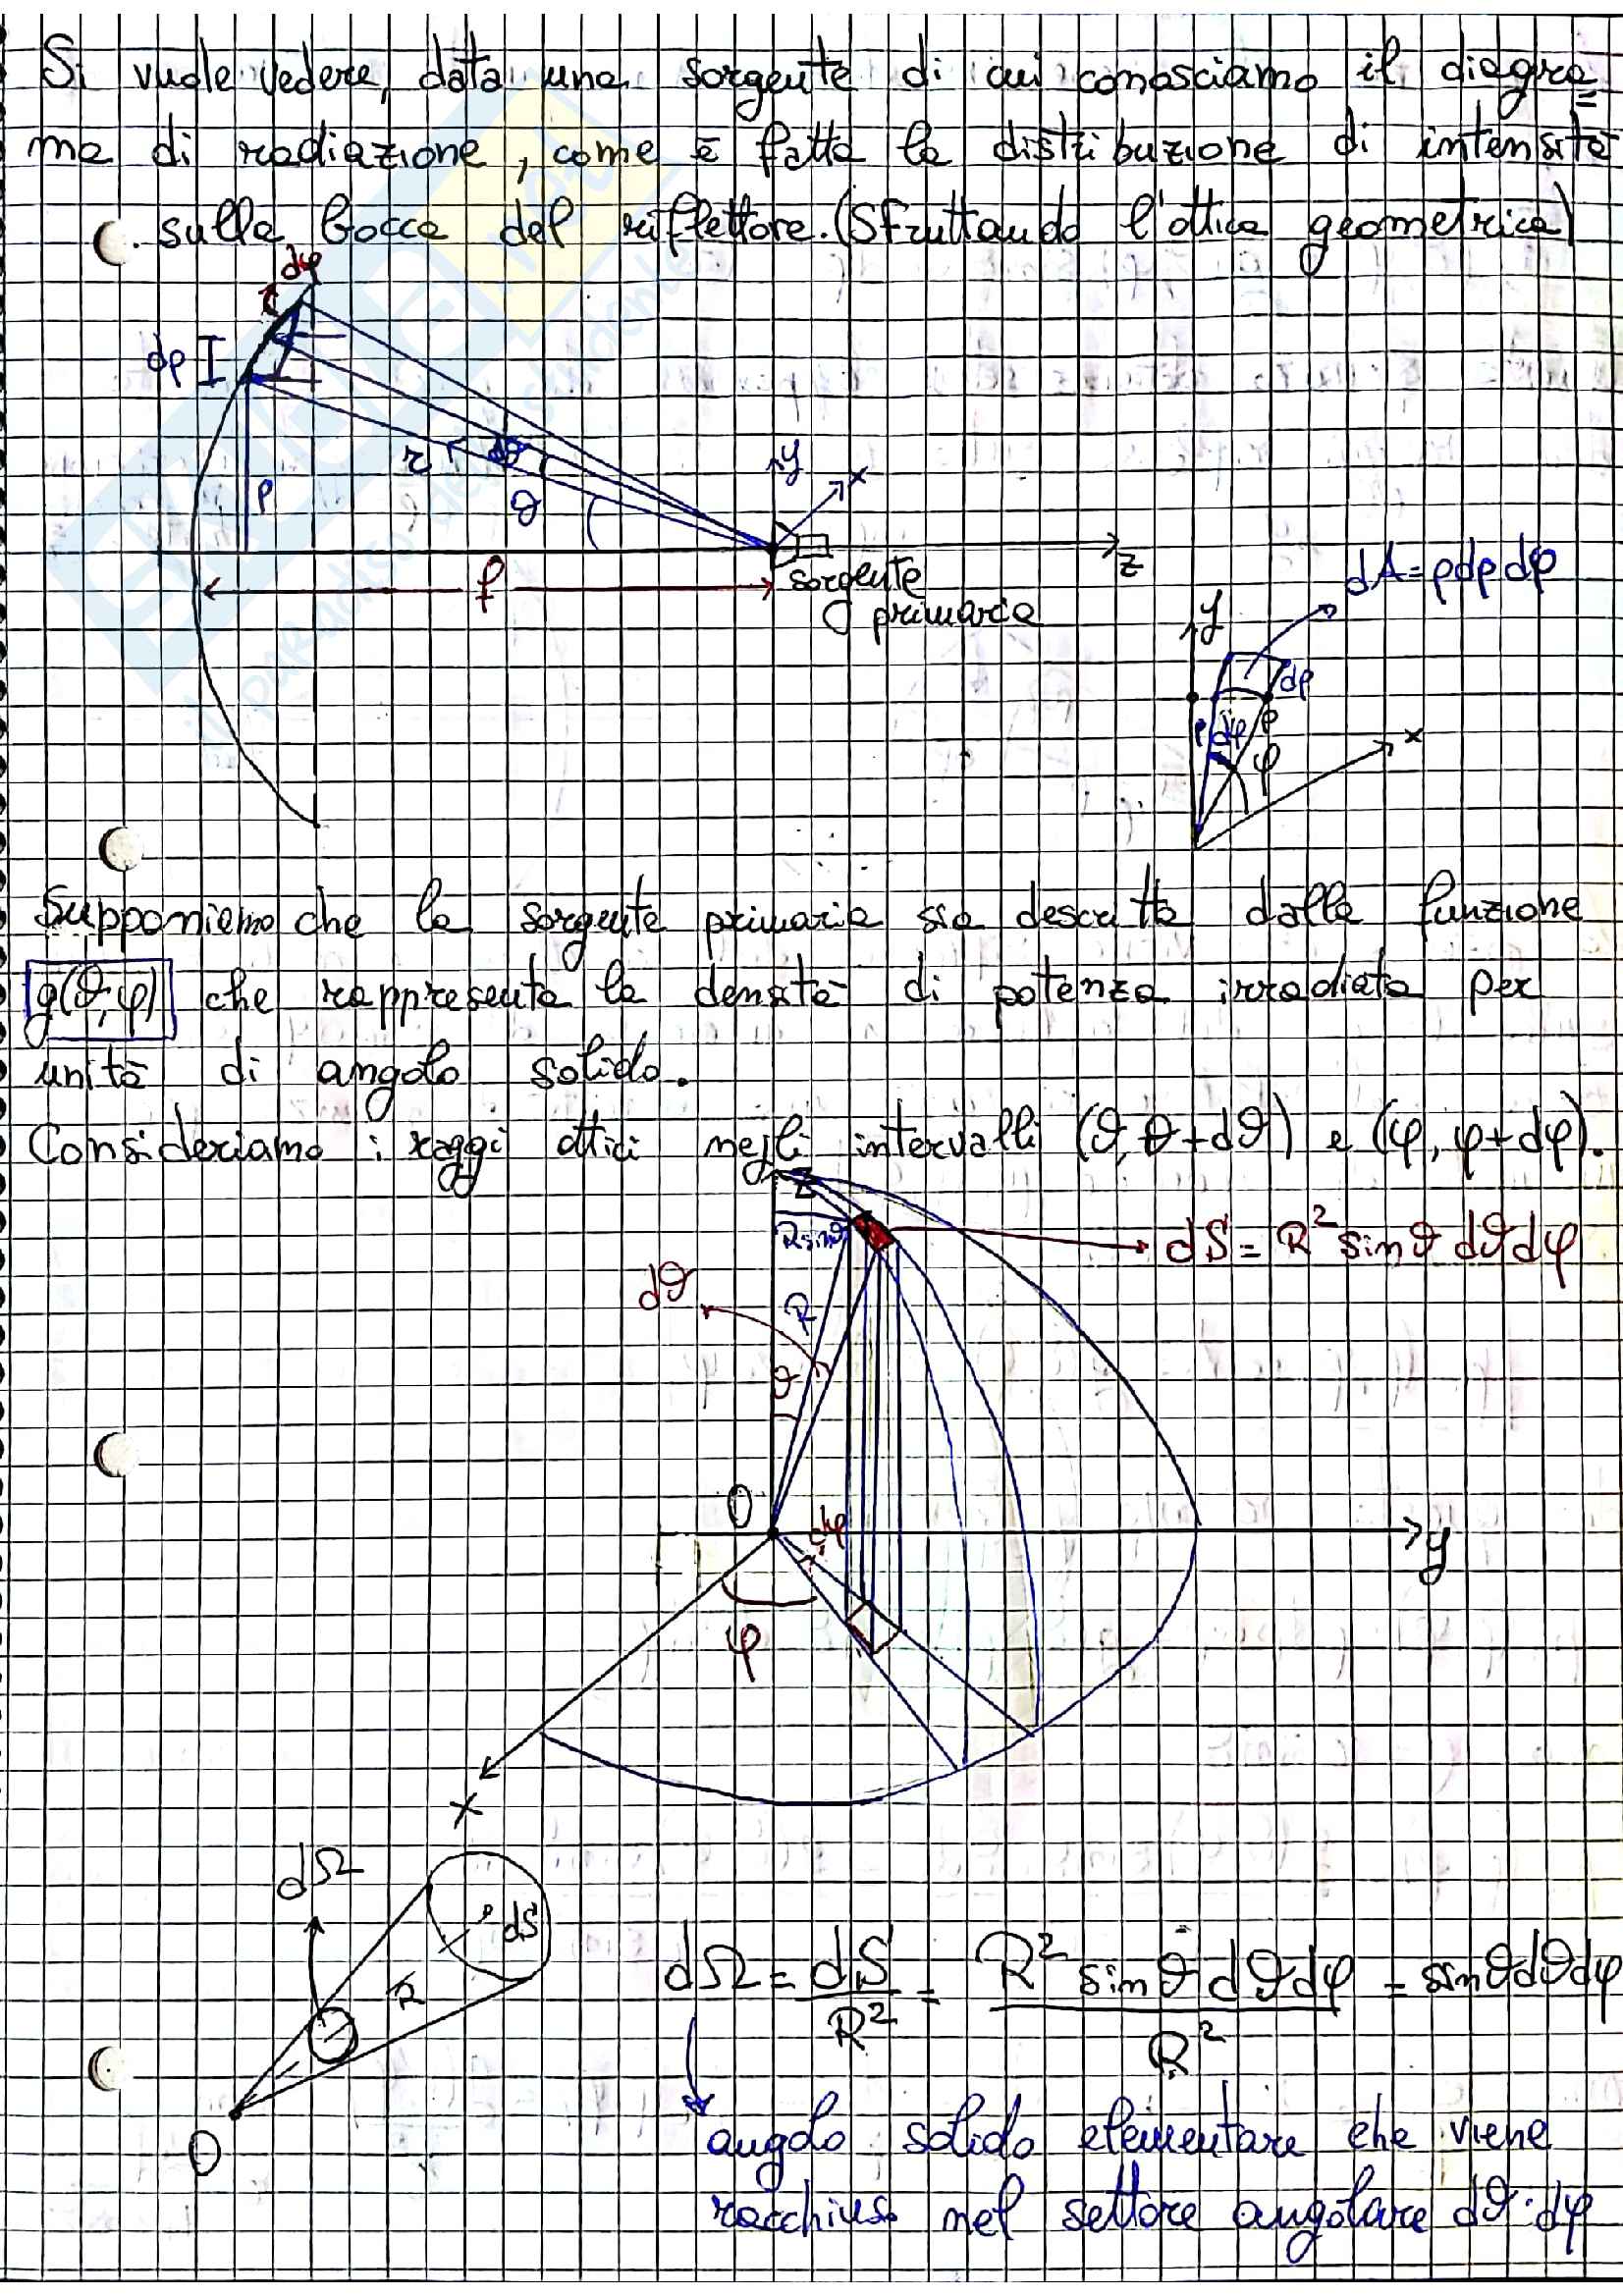 Si vuole vedere, data una sorgente di cui conosciamo il diagra=
ma di radiazione, come è fatta la distribuzione di intensità
sulla bocca del riflettore. (Sfruttando l'ottica geometrica)
dφ
dρ
r
dϑ
y
x
ρ
ϑ
z
f
sorgente
primaria
dA=ρdρdφ
y
dρ
ρ
dφ
ρ
x
φ
Supponiamo che la sorgente primaria sia descritta dalla funzione
g(ϑ,φ) che rappresenta la densità di potenza irradiata per
unità di angolo solido.
Consideriamo i raggi ottici negli intervalli (ϑ, ϑ+dϑ) e (φ, φ+dφ).
z
R sinϑ
dS = R² sinϑ dϑdφ
dϑ
R
ϑ
O
dφ
y
φ
x
dΩ
dS
R
O
dΩ = dS/R² = R² sinϑ dϑdφ/R² = sinϑdϑdφ
angolo solido elementare che viene
racchiuso nel settore angolare dϑ·dφ